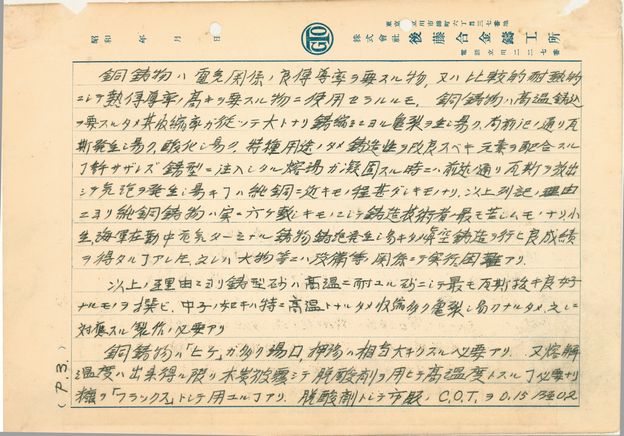 東京 立川市錦町六丁目三七番地
株式會社 後藤合金鑄工所
電話立川二二七番
GTO
昭和 年 月 日
銅鋳物ハ電気関係ノ良伝導率ヲ要スル物、又ハ比較的耐熱的
ニシテ熱伝導率ノ高キヲ要スル物ニ使用セラルルモ、銅鋳物ハ高温鋳込
ヲ要スルタメ其収縮率ガ従ツテ大トナリ鋳縮ニヨル亀裂ヲ生ジ易ク、尚前記ノ通リ瓦
斯発生シ易ク、酸化シ易ク、特種用途ノタメ鋳造性ヲ改良スベキ元素ヲ配合スル
了許サザレズ鋳型ニ注入シタル熔湯ガ凝固スル時ニ前述ノ通リ瓦斯ヲ放出
シテ気泡ヲ発生シ易キ了ハ純銅ニ近キモノ程甚ダシキモノナリ、以上列記ノ理由
ニヨリ純銅鋳物ハ実ニ六ケ敷シキモノニシテ鋳造技術者ノ最モ苦シムモノナリ小
生海軍在勤中電気ターミナル鋳物鋳泡発生シ易キタメ真空鋳造ヲ行ヒ良成績
ヲ得タル了アレドモ、之レハ大物等ニハ設備等ノ関係ニテ実行困難アリ.
以上ノ理由ニヨリ鋳型砂ハ高温ニ耐ユル砂ニシテ最モ瓦斯抜キ良好
ナルモノヲ撰ビ、中子ノ如キハ特ニ高温トナルタメ収縮多ク亀裂シ易クナルタメ、之レニ
対應スル製作ノ必要アリ
銅鋳物ハ「ヒケ」ガ多ク湯口、押湯ハ相当大キクスル必要アリ. 又熔解
温度ハ出来得ル限リ木炭被覆シテ脱酸剤ヲ用ヒテ高温度トスル了必要ナリ
種々ノ「フラックス」トシテ用ユル了アリ. 脱酸剤トシテ市販ノC.O.T.ヲ0.15乃至0.2
(P.3.)